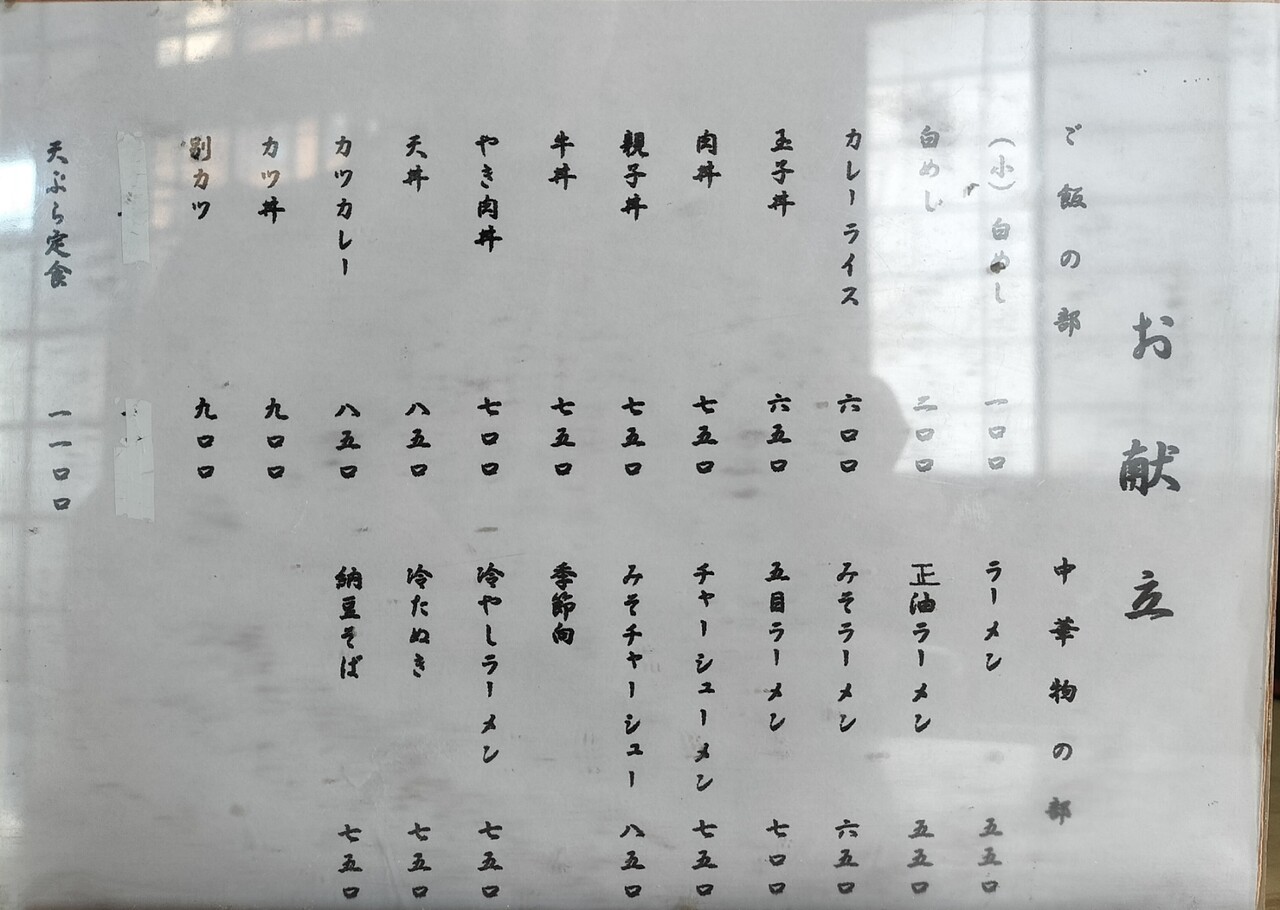 お献立
ご飯の部
(小)白めし 一〇〇
白めし 二〇〇
カレーライス 六〇〇
玉子丼 六五〇
肉丼 七五〇
親子丼 七五〇
牛丼 七五〇
やき肉丼 七〇〇
天丼 八五〇
カツカレー 八五〇
カツ丼 九〇〇
別カツ 九〇〇
天ぷら定食 一一〇〇
中華物の部
ラーメン 五五〇
正油ラーメン 五五〇
みそラーメン 六五〇
五目ラーメン 七〇〇
チャーシューメン 七五〇
みそチャーシュー 八五〇
季節向
冷やしラーメン 七五〇
冷たぬき 七五〇
納豆そば 七五〇